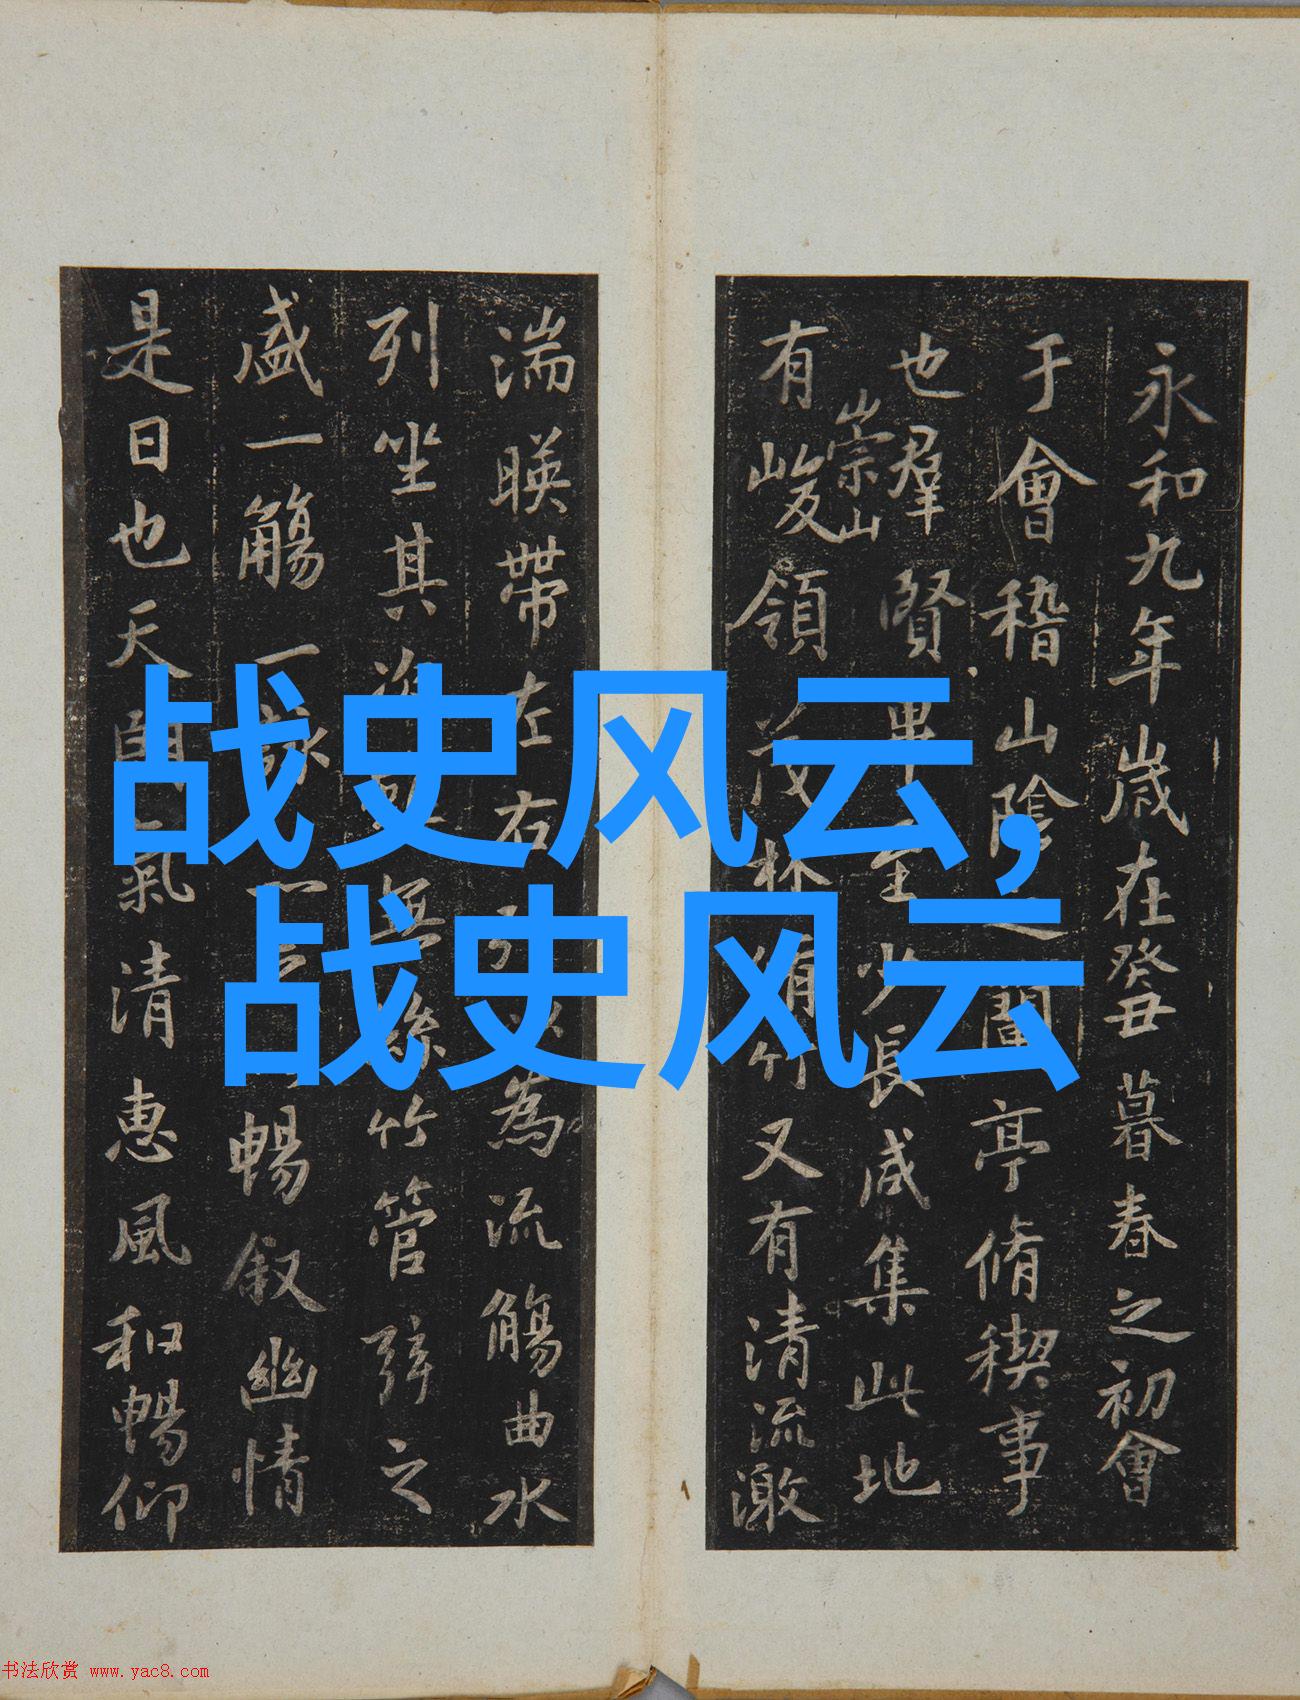 永和九年歲在癸丑暮春之初會
于會稽山陰之蘭亭脩稧事
也羣賢畢至少長咸集此地
有崇山峻領茂林脩竹又有清流激
湍暎帶左右引以為流觴曲水
列坐其無絲竹管弦之
盛一觴一詠暢叙幽情
是日也天朗氣清惠風和暢仰
战史风云,
战史风云
书法欣赏 www.yac8.com